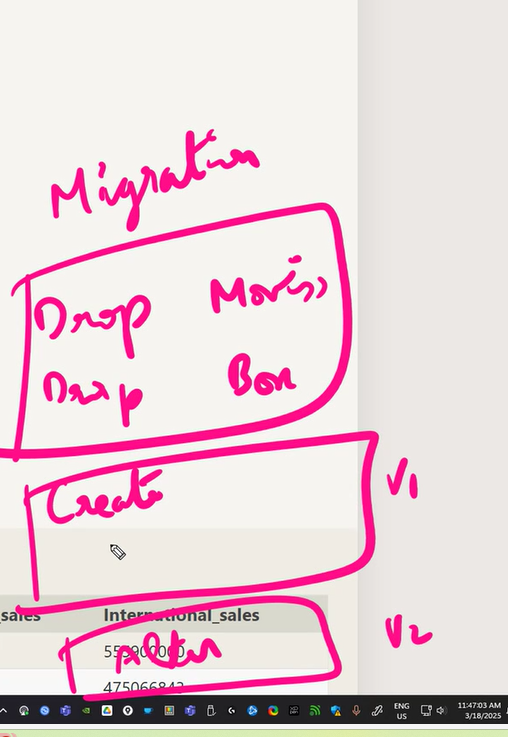 Migration
Drop Movies
Drop Box
Create
V1
_sales International_sales
Alter
V2
475066842
ENG 11:47:03 AM
US 3/18/2025